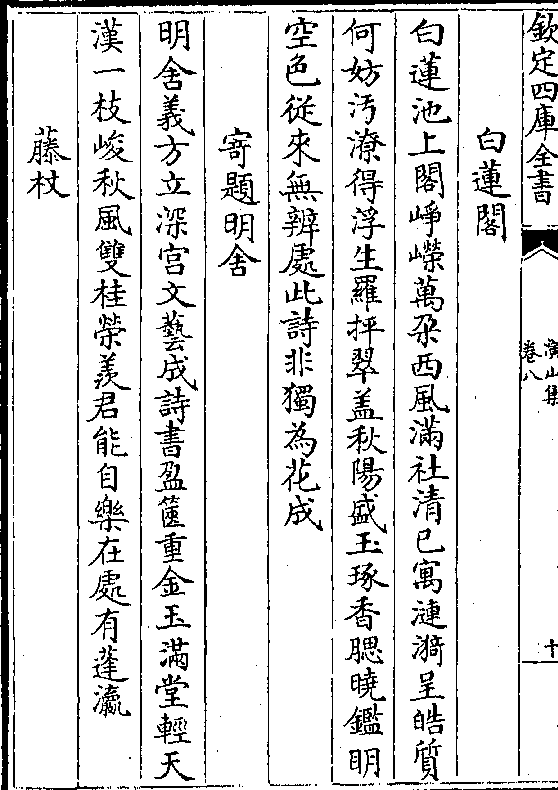 欽定四庫全書
演山集
卷八
十
白蓮閣
白蓮池上閣崢嶸萬朶西風滿社清已寓漣漪呈皓質
何妨汚潦得浮生羅抨翠盖秋陽盛玉琢香腮曉鑑明
空色從來無辨處此詩非獨為花成
寄題明舍
明舍義方立深宫文藝成詩書盈篋重金玉滿堂輕天
漢一枝峻秋風雙桂榮羨君能自樂在處有蓬瀛
藤杖